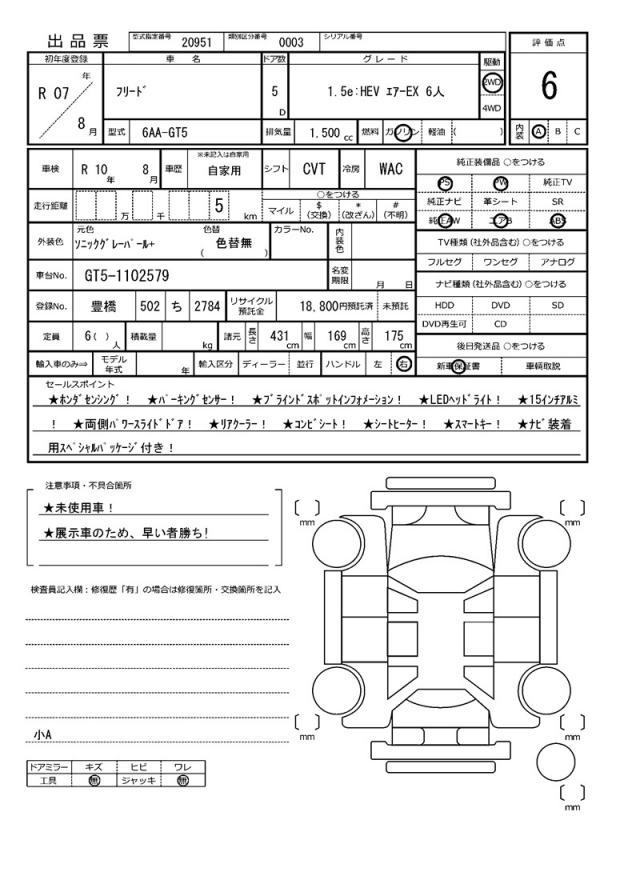 出品票 型式指定番号 20951 類別区分番号 0003 シリアル番号
評価点
6
内装 A B C
初年度登録 車名 ドア数 グレード 駆動
R 07 年 8 月 フリード 5 D 1.5e:HEV エアーEX 6人 2WD 4WD
型式 6AA-GT5 排気量 1.500 cc 燃料 ガソリン 軽油 ( )
車検 R 10 年 8 月 車歴 ※未記入は自家用 自家用 シフト CVT 冷房 WAC
走行距離 万 千 5 km ○をつける マイル $ (交換) * (改ざん) # (不明)
外装色 元色 ソニックグレーパール+ 色替 ( 色替無 ) カラーNo. 内装色
車台No. GT5-1102579 名変期限 月 日
登録No. 豊橋 502 ち 2784 リサイクル預託金 18,800円預託済 未預託
定員 6( )人 積載量 kg 諸元 長さ 431 cm 幅 169 cm 高さ 175 cm
輸入車のみ⇒ モデル年式 年 輸入区分 ディーラー 並行 ハンドル 左 右
純正装備品 ○をつける
PS PW 純正TV
純正ナビ 革シート SR
純正AW エアB ABS
TV種類 (社外品含む) ○をつける
フルセグ ワンセグ アナログ
ナビ種類 (社外品含む) ○をつける
HDD DVD SD
DVD再生可 CD
後日発送品 ○をつける
新車保証書 車輌取説
セールスポイント
★ホンダセンシング! ★パーキングセンサー! ★ブラインドスポットインフォメーション! ★LEDヘッドライト! ★15インチアルミ
! ★両側パワースライドドア! ★リアクーラー! ★コンビシート! ★シートヒーター! ★スマートキー! ★ナビ装着
用スペシャルパッケージ付き!
注意事項・不具合箇所
★未使用車!
★展示車のため、早い者勝ち!
検査員記入欄:修復歴「有」の場合は修復箇所・交換箇所を記入
小A
ドアミラー キズ ヒビ ワレ
工具 無 ジャッキ 無
[ ] mm
[ ] mm
[ ] mm
[ ] mm
[ ] mm